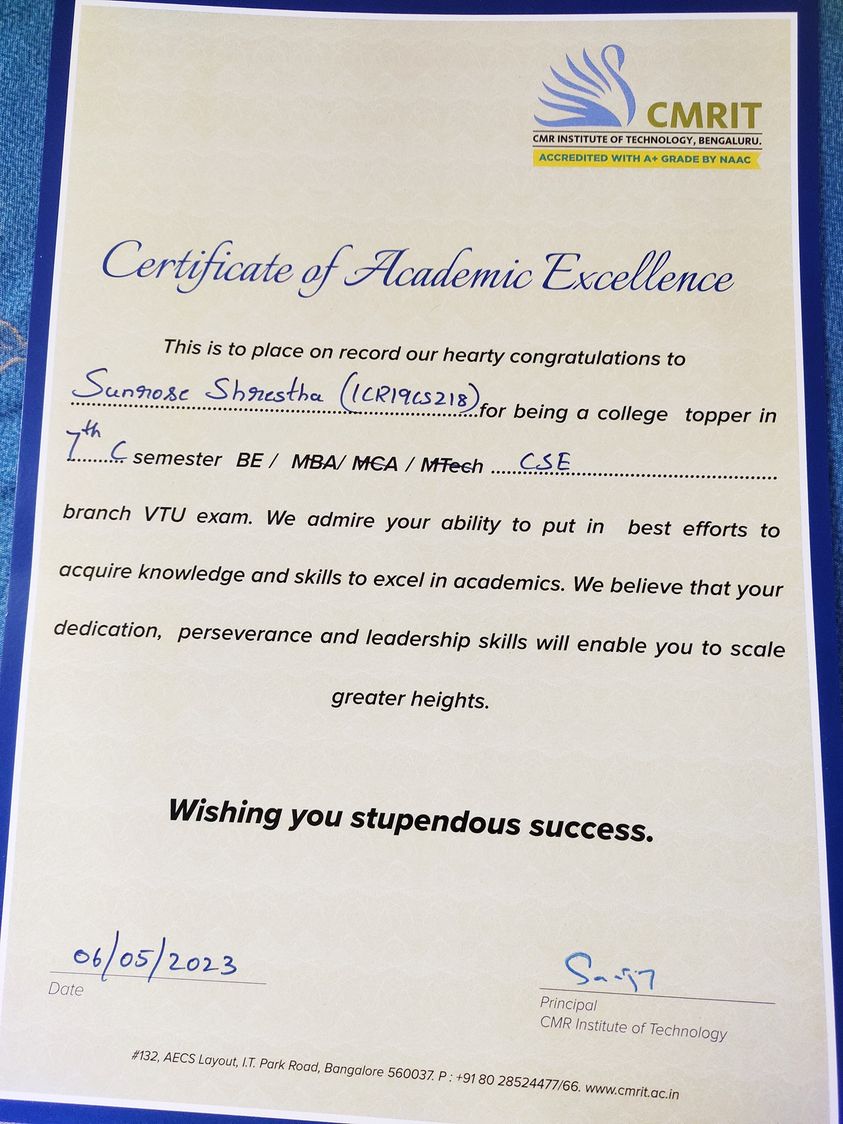 CMRIT
CMR INSTITUTE OF TECHNOLOGY, BENGALURU.
ACCREDITED WITH A+ GRADE BY NAAC
Certificate of Academic Excellence
This is to place on record our hearty congratulations to
Sunrose Shrestha (1CR19CS218) for being a college topper in
7th C semester BE / MBA/ MCA / MTech CSE
branch VTU exam. We admire your ability to put in best efforts to
acquire knowledge and skills to excel in academics. We believe that your
dedication, perseverance and leadership skills will enable you to scale
greater heights.
Wishing you stupendous success.
06/05/2023
Date
Principal
CMR Institute of Technology
#132, AECS Layout, I.T. Park Road, Bangalore 560037. P : +91 80 28524477/66. www.cmrit.ac.in